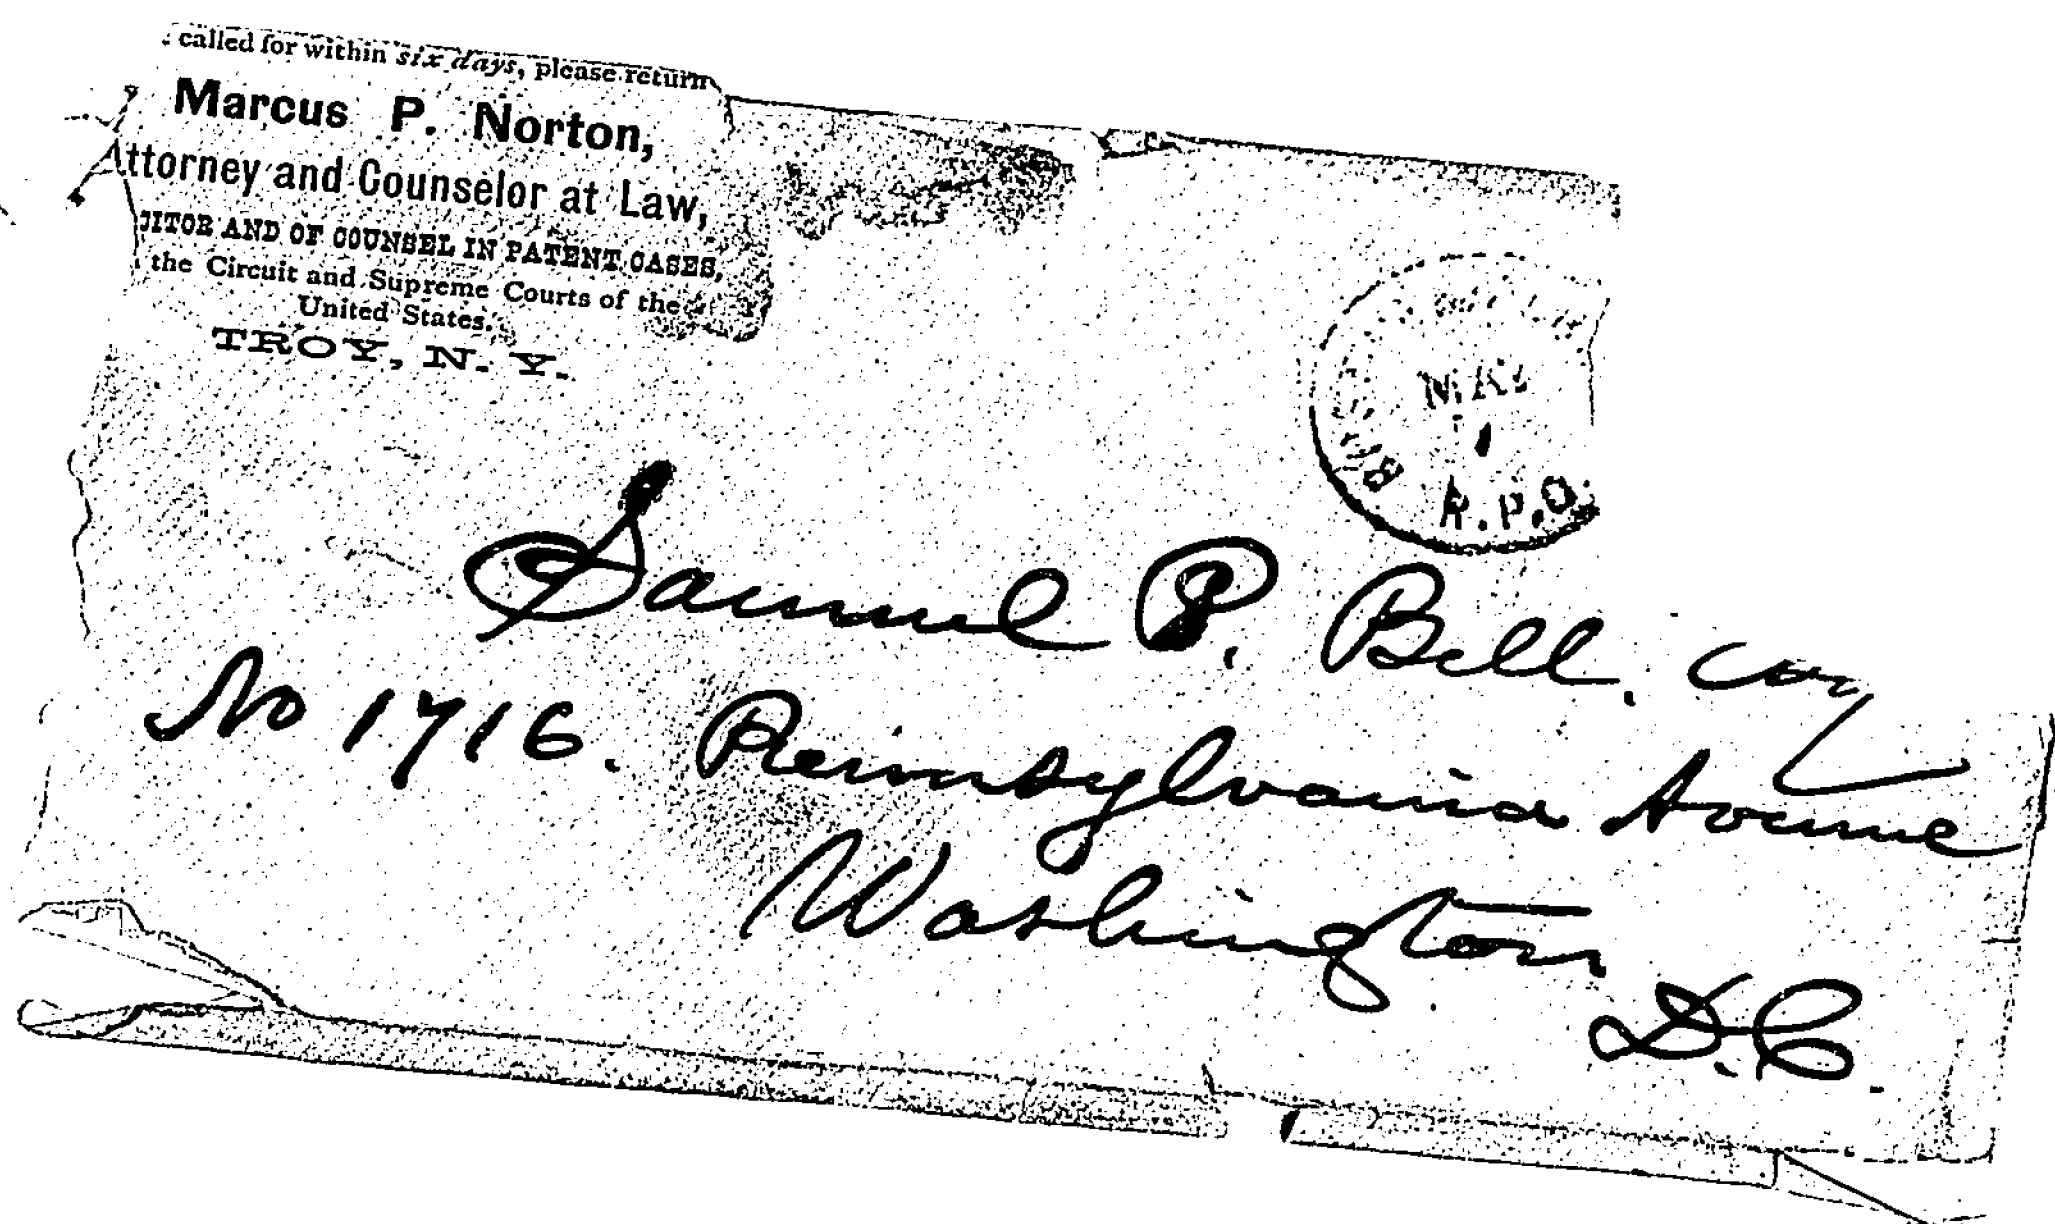 called for within six days, please return
Marcus P. Norton,
Attorney and Counselor at Law,
ITOR AND OF COUNSEL IN PATENT CASES,
the Circuit and Supreme Courts of the
United States.
TROY, N. Y.
R.P.O.
Samuel P. Bell.
No 1716. Pennsylvania Avenue
Washington
D.C.